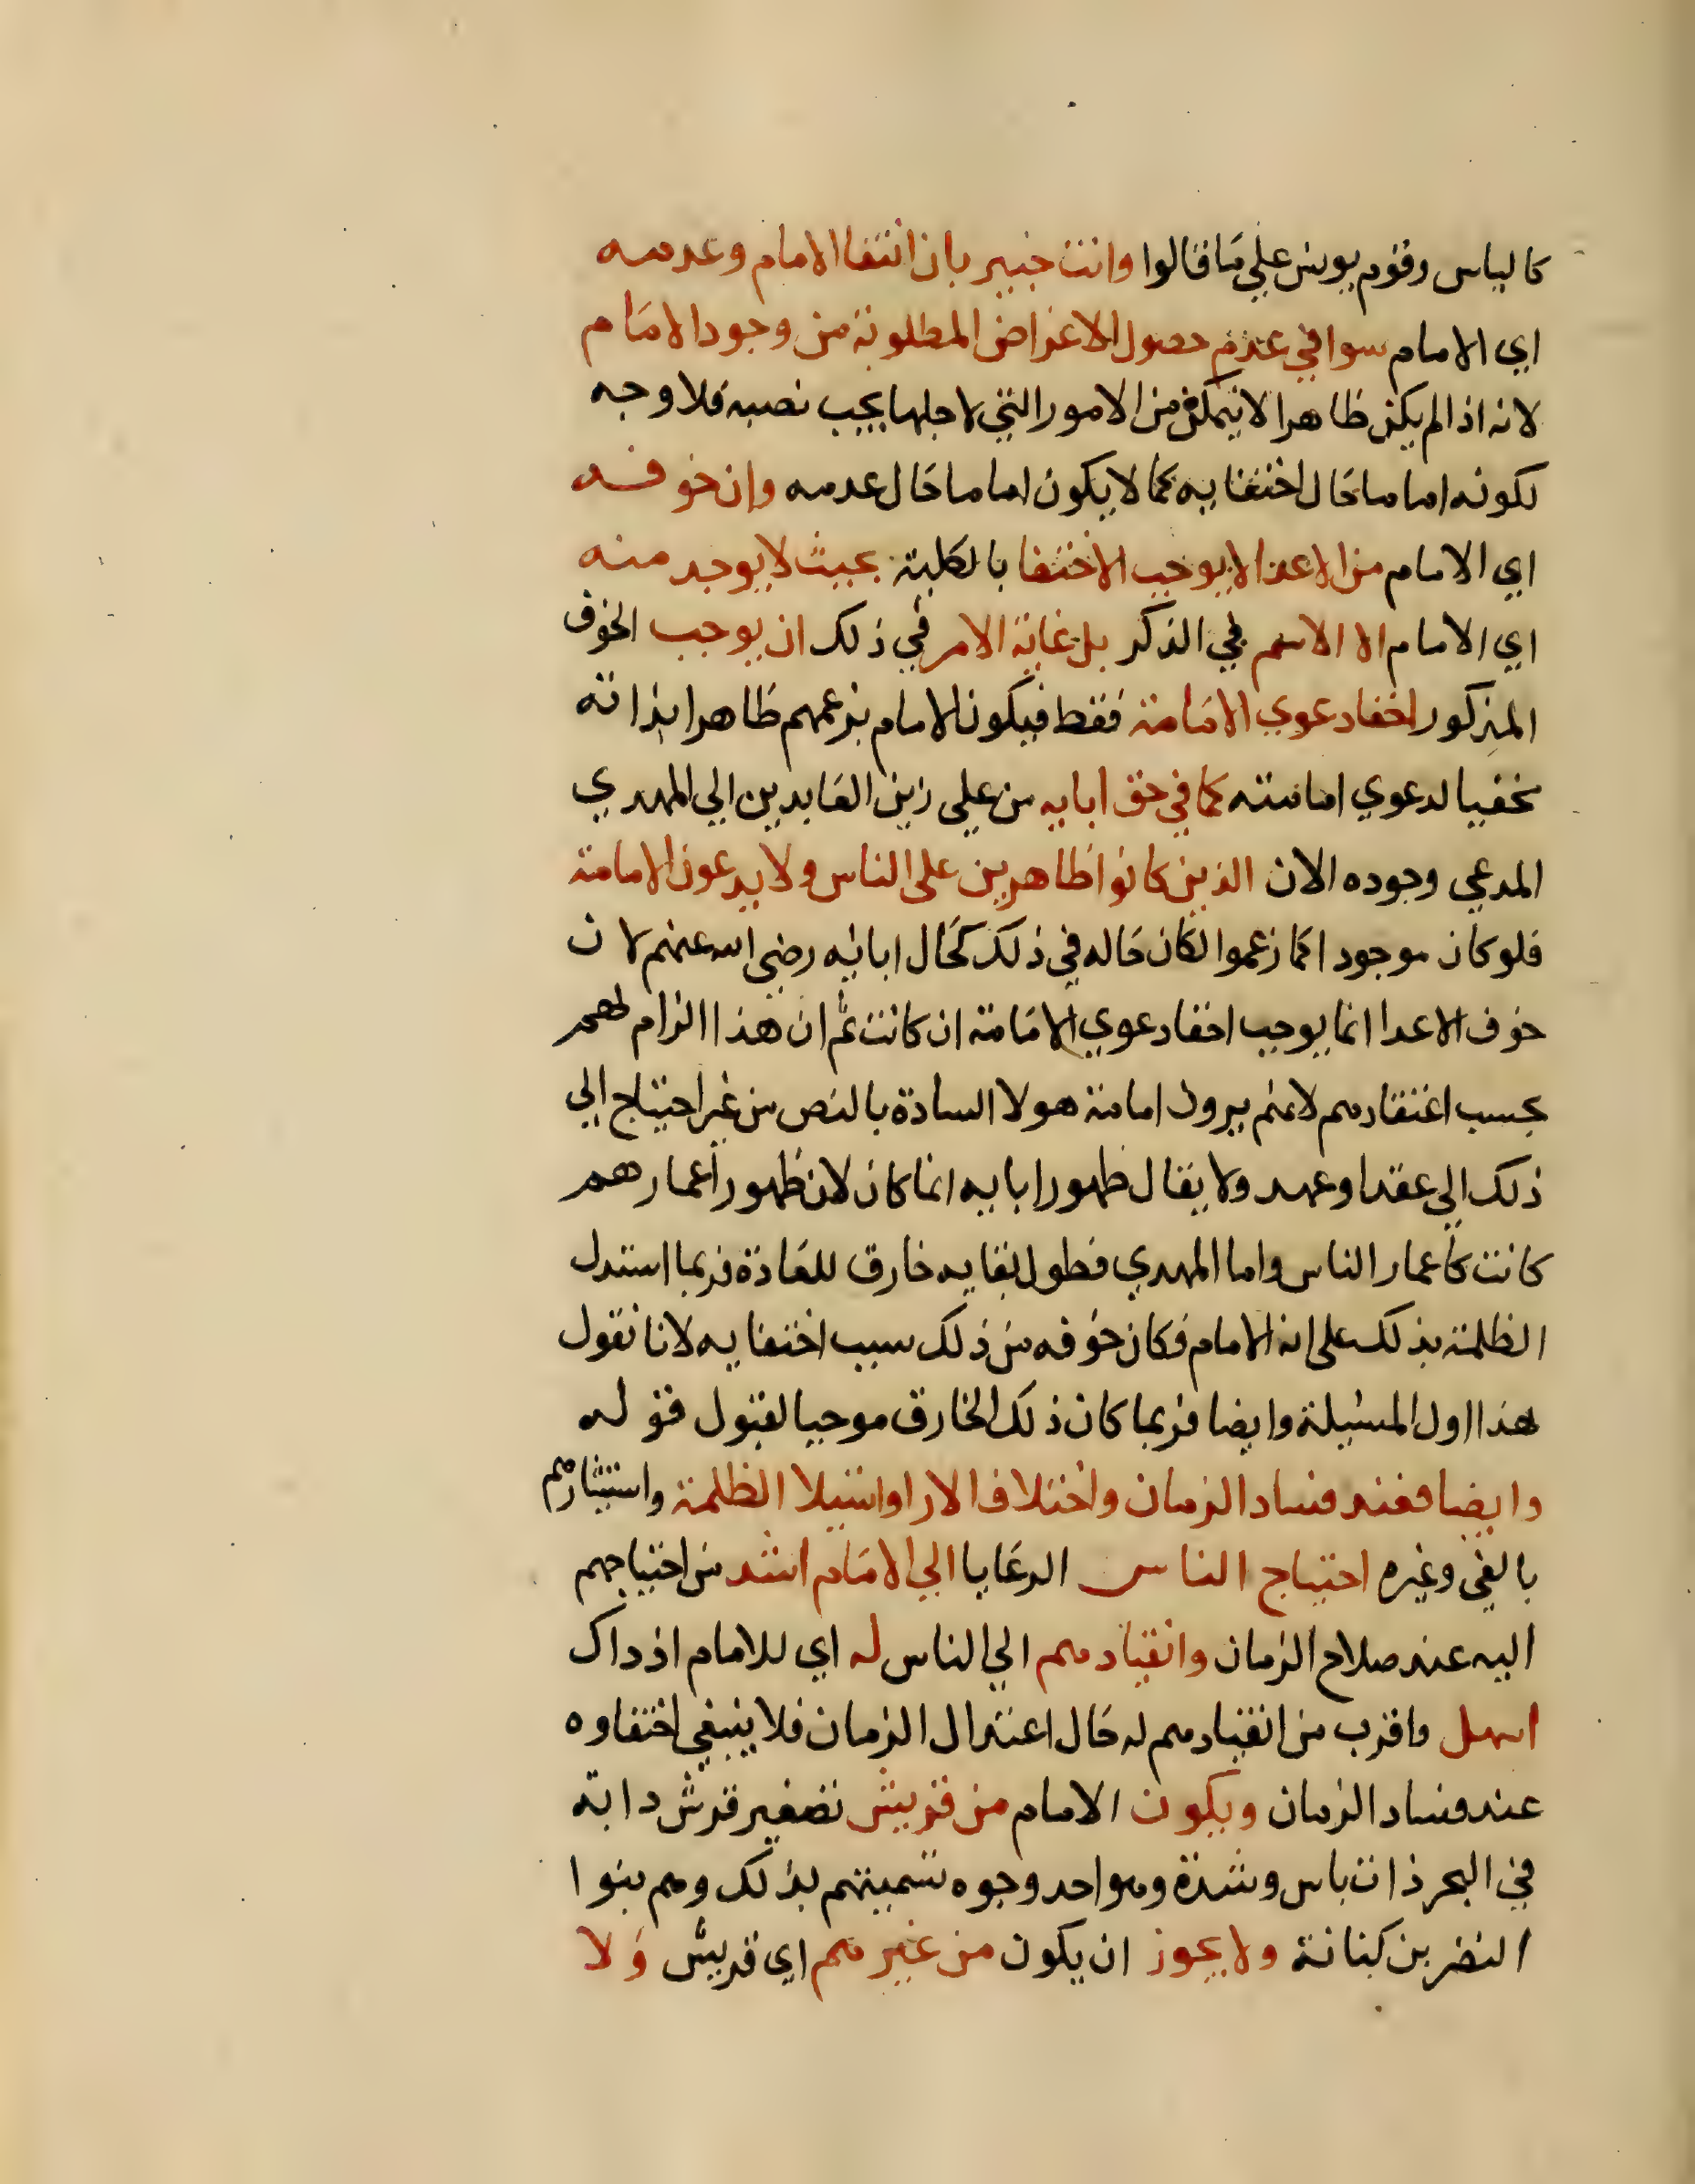 كالياس وقوم يونس علي ما قالوا وانت خبير بان انتفا الامام وعدمه
اي الامام سوا في عدم حصول الاغراض المطلوبة من وجود الامام
لانه اذا لم يكن ظاهرا لا يتمكن من الامور التي لاجلها يجب نصبه فلا وجه
لكونه اماما حال اختفايه كما لا يكون اماما حال عدمه وان خوفه
اي الامام من الاعدا لا يوجب الاختفا بالكلية بحيث لا يوجد منه
اي الامام الا الاسم في الذكر بل غاية الامر في ذلك ان يوجب الخوف
المذكور اخفا دعوي الامامة فقط فيكون الامام بزعمهم ظاهرا بذاته
مخفيا لدعوي امامته كما في حق ابايه من علي زين العابدين الي المهدي
المدعي وجوده الان الذين كانوا ظاهرين علي الناس ولا يدعون الامامة
فلو كان موجودا كما زعموا لكان حاله في ذلك كحال ابائه رضي الله عنهم لان
خوف الاعدا انما يوجب اخفا دعوي الامامة ان كانت ثم ان هذا الزام لهم
بحسب اعتقادهم لانهم يرون امامة هولا السادة بالنص من غير احتياج الي
ذلك الي عقد او عهد ولا يقال ظهور ابايه انما كان لان ظهور اعمارهم
كانت كاعمار الناس واما المهدي فطول بقايه خارق للعادة فربما استدل
الظلمة بذلك علي انه الامام فكان خوفه من ذلك سبب اختفايه لانا نقول
هذا اول المسئيلة وايضا فربما كان ذلك الخارق موجبا لقبول قوله
وايضا فعند فساد الزمان واختلاف الارا واستيلا الظلمة واستيثارهم
بالفي وغيره احتياج الناس الرعايا الي الامام اشد من احتياجهم
اليه عند صلاح الزمان وانقيادهم الي الناس له اي للامام اذ داك
اسهل واقرب من انقيادهم له حال اعتدال الزمان فلا ينبغي اختفاوه
عند فساد الزمان ويكون الامام من قريش تصغير قرش دابة
في البحر ذات باس وشدة وهو احد وجوه تسميتهم بذلك وهم بنوا
النضر بن كنانة ولا يجوز ان يكون من غيرهم اي قريش ولا